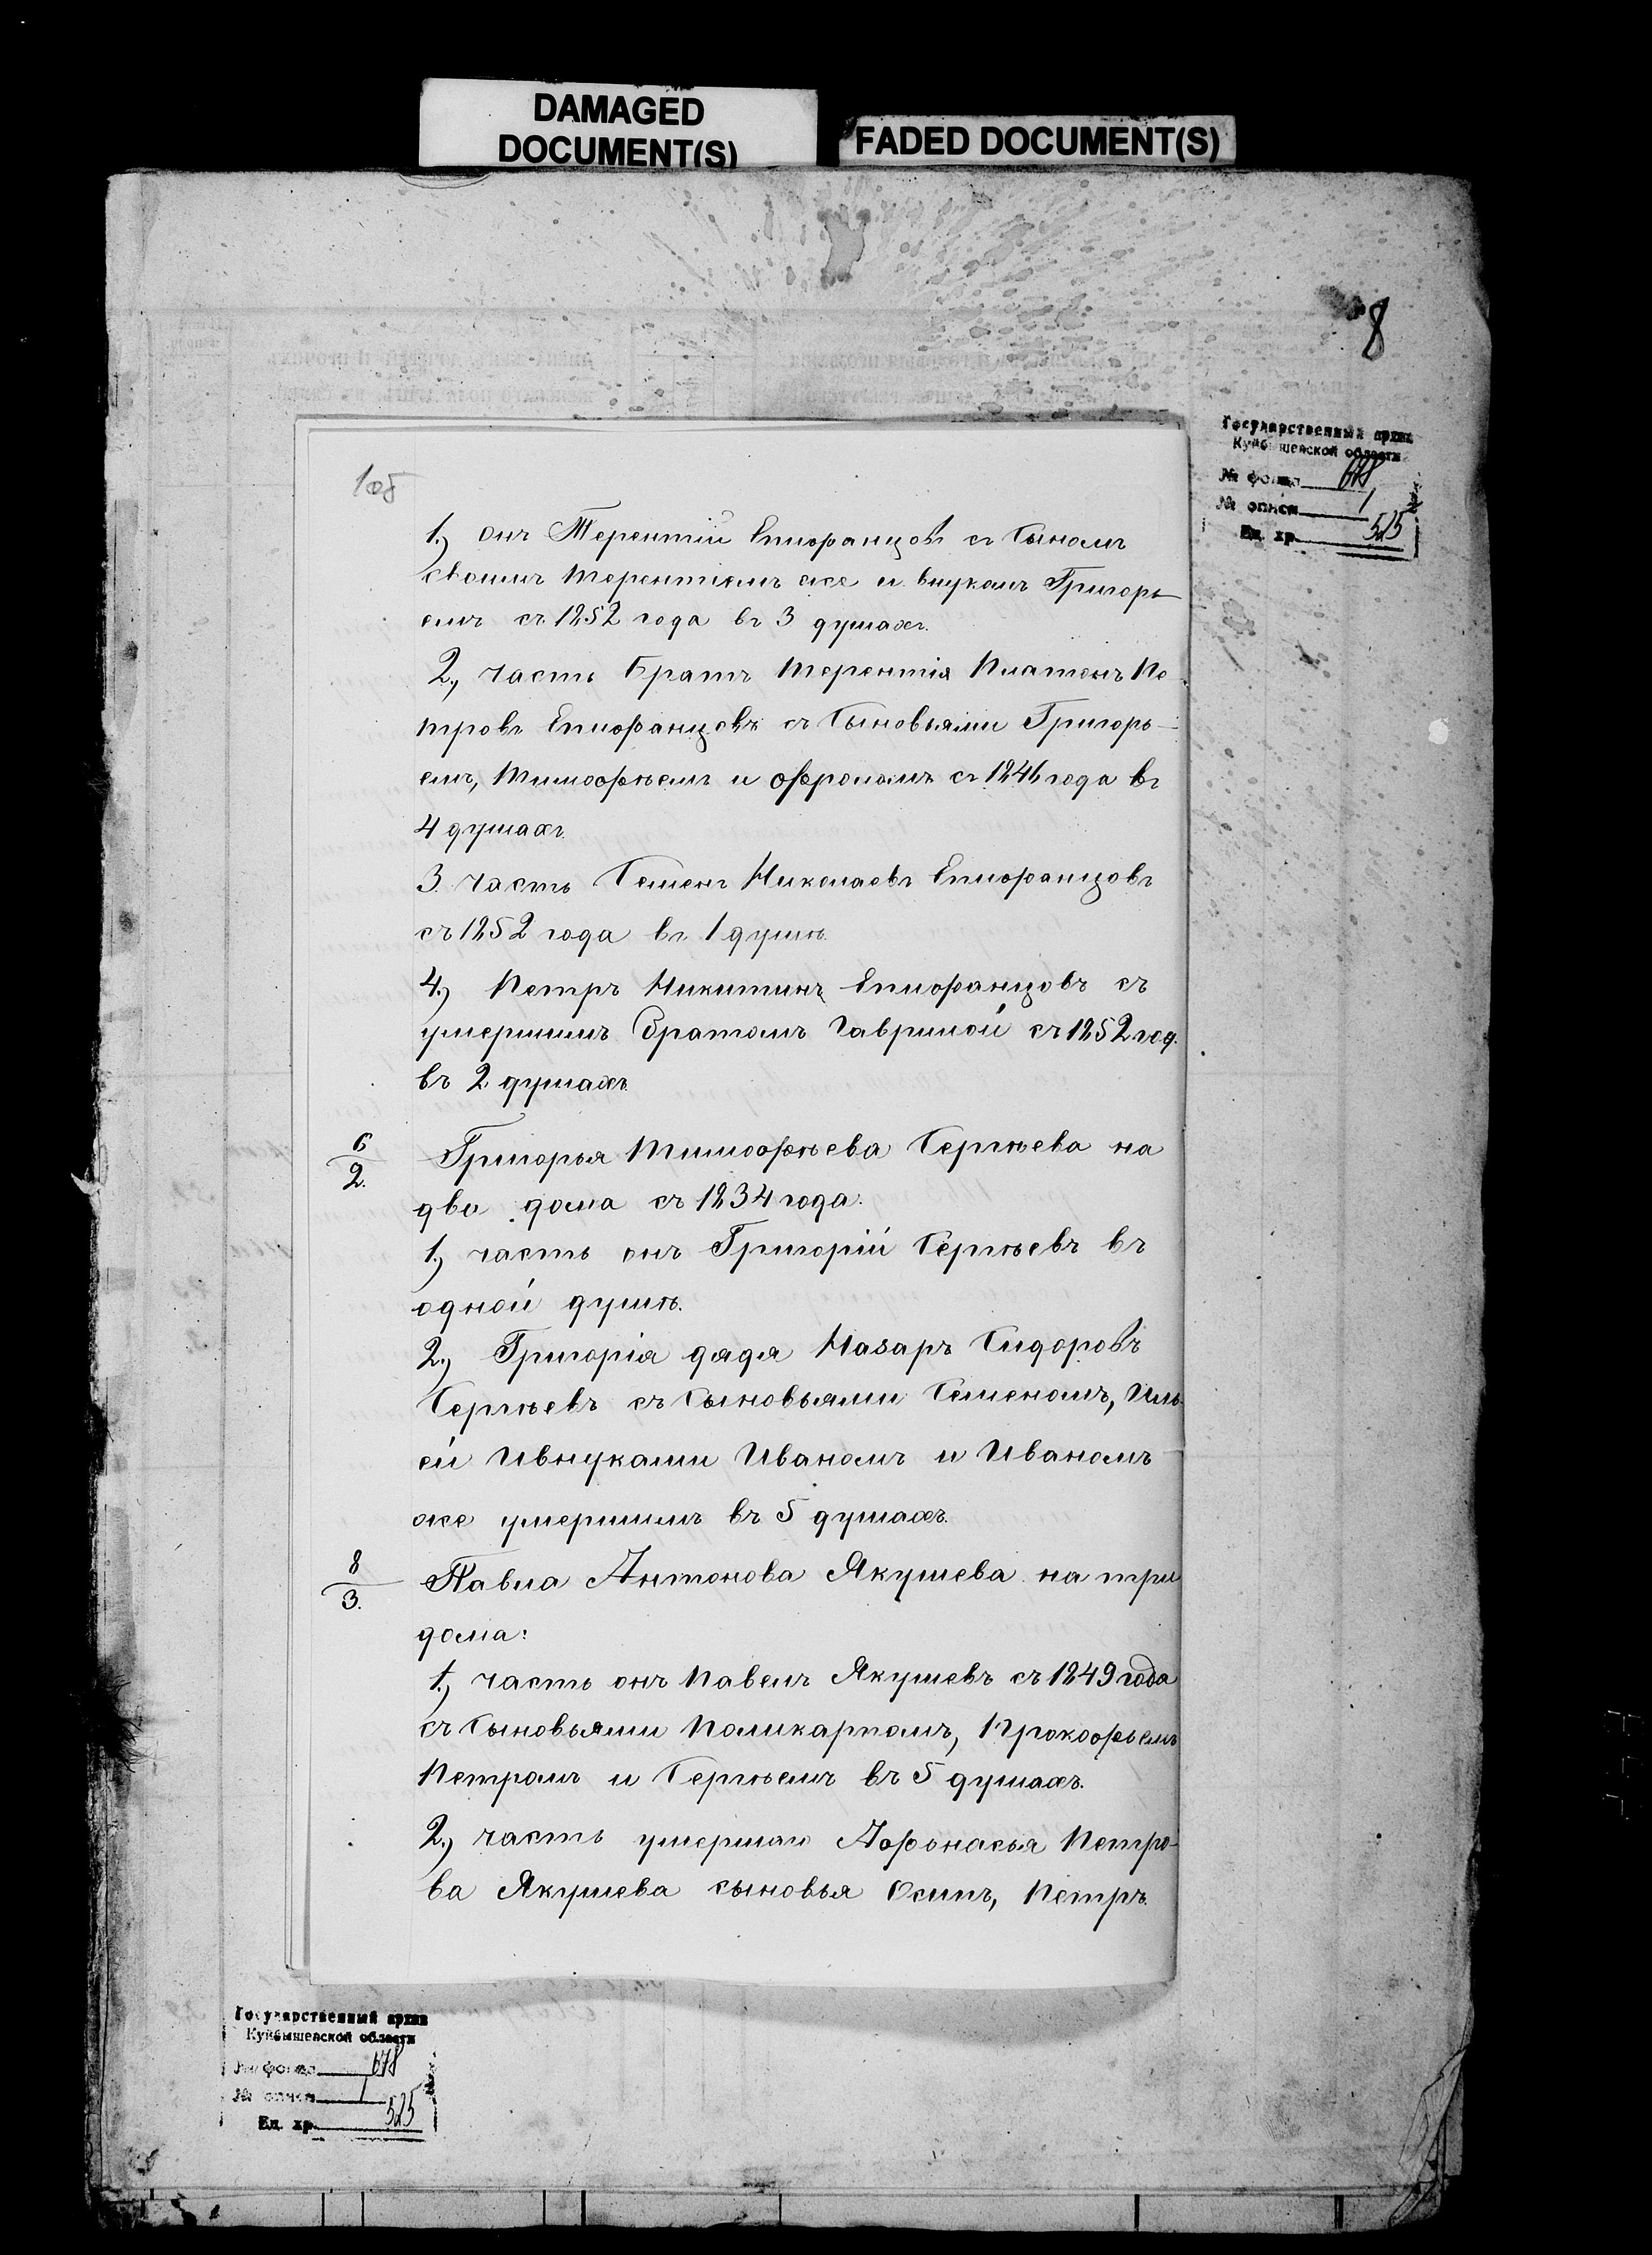 DAMAGED
DOCUMENT(S)
FADED DOCUMENT(S)
8
Государственный архив
Куйбышевской области
№ фонда 678
№ описи 1
Ед. хр. 525
1об
1.) онъ Терентій Епифанцовъ съ Сыномъ
своимъ Терентіемъ же и внукомъ Григорь-
емъ съ 1852 года въ 3 душахъ.
2., часть Братъ Терентія Платонъ Пе-
тровъ Епифанцовъ съ Сыновьями Григорь-
емъ, Тимофѣемъ и Фроломъ съ 1846 года въ
4 душахъ.
3. часть Семенъ Николаевъ Епифанцовъ
съ 1852 года въ 1 душѣ.
4.) Петръ Никитинъ Епифанцовъ съ
умершимъ Братомъ Гаврилой съ 1852 год.
въ 2 душахъ.
6/2. Григорья Тимофѣева Сергѣева на
два дома съ 1834 года.
1.) часть онъ Григорій Сергѣевъ въ
одной душѣ.
2.) Григорія дядя Назаръ Сидоровъ
Сергѣевъ съ Сыновьями Семеномъ, Иль-
ей Ивнуками Иваномъ и Иваномъ
же умершимъ въ 5 душахъ.
8/3. Павла Антонова Якушева на три
дома:
1.) часть онъ Павелъ Якушевъ съ 1849 года
съ Сыновьями Поликарпомъ, Прокофьемъ
Петромъ и Сергѣемъ въ 5 душахъ.
2.) часть умершаго Афонасья Петро-
ва Якушева сыновья Осипъ, Петръ.
Государственный архив
Куйбышевской области
№ фонда 678
№ описи 1
Ед. хр. 525